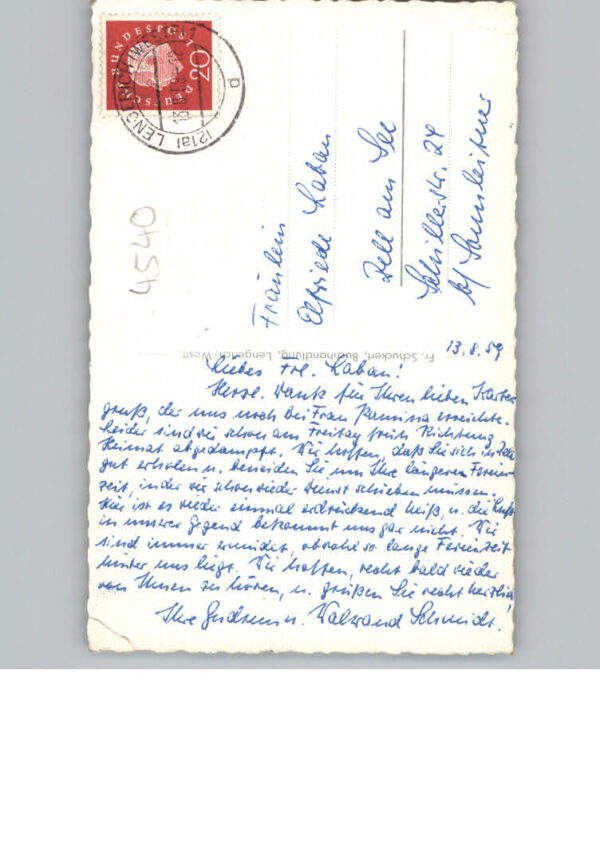 DEUTSCHE BUNDESPOST
20
(21a) LENGERICH (WESTF)
4540
Fräulein
Elfriede Laban
Zell am See
Schillerstr. 24
b/ Sonnleitner
Fr. Schuckert, Buchhandlung, Lengerich/Westf.
13.8.59
Liebes Frl. Laban!
Herzl. Dank für Ihren lieben Karten-
gruß, der uns noch bei Frau erreichte.
Leider sind wir schon am Freitag früh Richtung
Heimat abgedampft. Wir hoffen, daß Sie sich in Zell
gut erholen u. beneiden Sie um Ihre längere Ferien-
zeit, in der wir schon wieder Dienst schieben müssen.
Hier ist es wieder einmal erdrückend heiß, u. die Luft
in unserer Gegend bekommt uns gar nicht. Wir
sind immer ermüdet, obwohl so lange Ferienzeit
hinter uns liegt. Wir hoffen, recht bald wieder
von Ihnen zu hören, u. grüßen Sie recht herzlich!
Ihre Gudrun u. Schmidt.